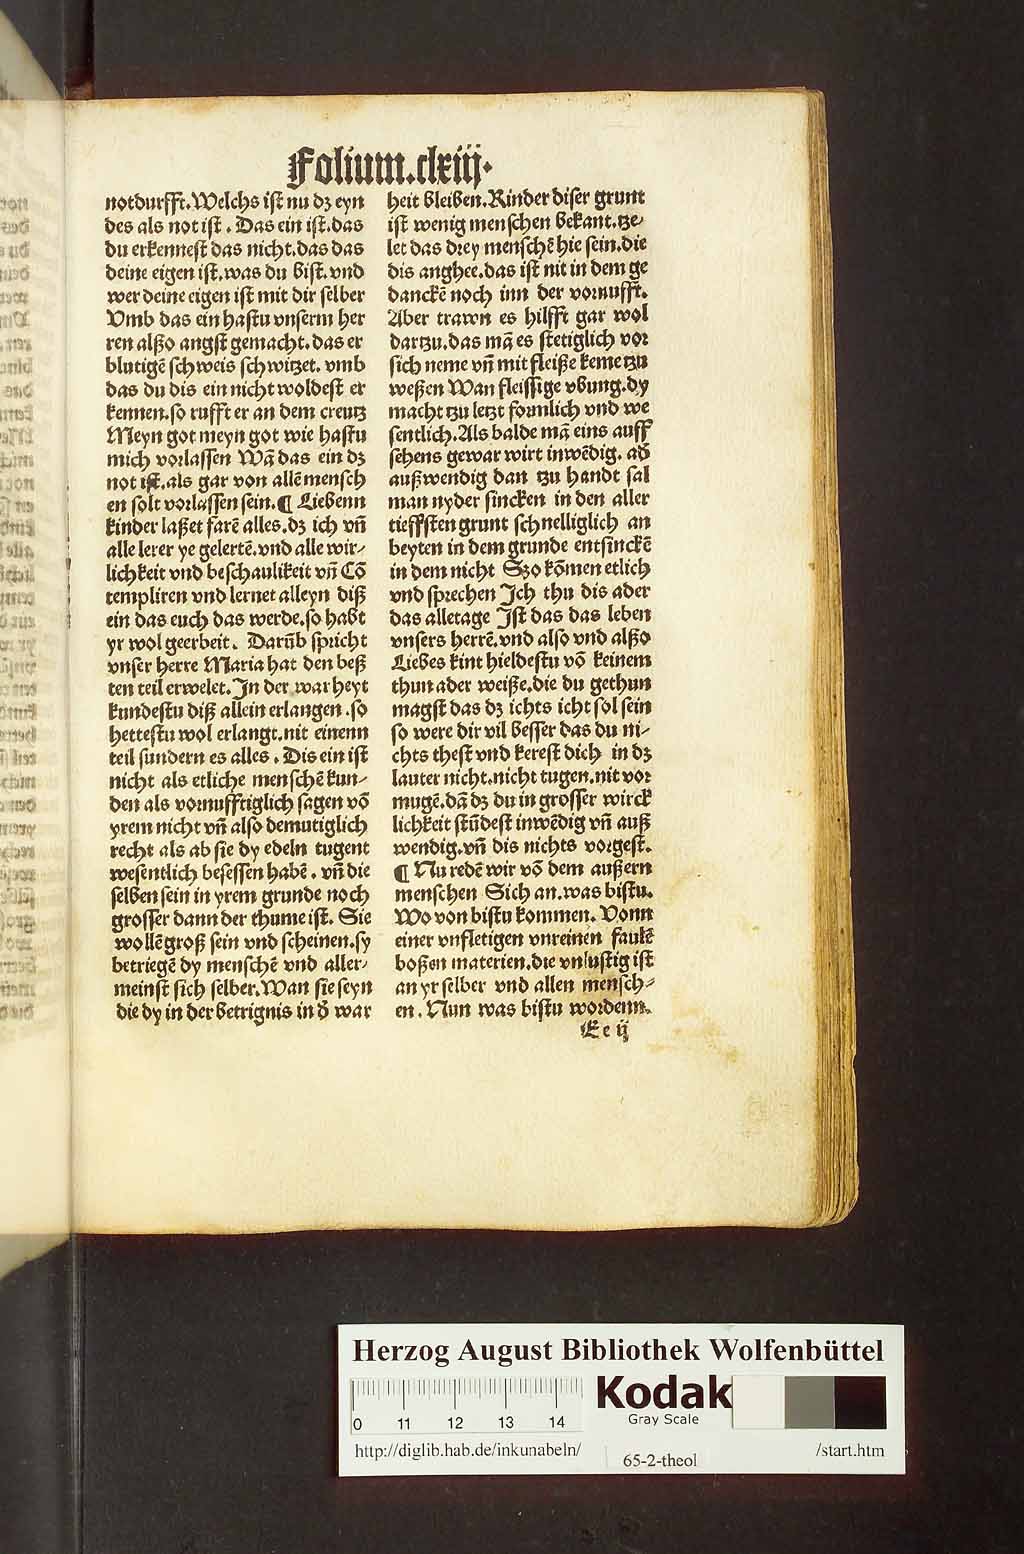 Folium.clxiij.
notdurfft. Welchs ist nu dz eyn
des als not ist. Das ein ist. das
du erkennest das nicht. das das
deine eigen ist. was du bist. vnd
wer deine eigen ist mit dir selber
Vmb das ein hastu vnserm her
ren alßo angst gemacht. das er
blutigē schweis schwitzet. vmb
das du dis ein nicht woldest er
kennen. so rufft er an dem creutz
Meyn got meyn got wie hastu
mich vorlassen Wā das ein dz
not ist. als gar von allē mensch
en solt vorlassen sein. ¶ Liebenn
kinder laßet farē alles. dz ich vn̄
alle lerer ye gelertē. vnd alle wir⸗
lichkeit vnd beschaulikeit vn̄ Cō
templiren vnd lernet alleyn diß
ein das euch das werde. so habt
yr wol geerbeit. Darūb spricht
vnser herre Maria hat den beß
ten teil erwelet. In der warheyt
kundestu diß allein erlangen. so
hettestu wol erlangt. nit einenn
teil sundern es alles. Dis ein ist
nicht als etliche menschē kun⸗
den als vornufftiglich sagen vō
yrem nicht vn̄ also demutiglich
recht als ab sie dy edeln tugent
wesentlich besessen habē. vn̄ die
selben sein in yrem grunde noch
grosser dann der thume ist. Sie
wollē groß sein vnd scheinen. sy
betriegē dy menschē vnd aller⸗
meinst sich selber. Wan sie seyn
die dy in der betrignis in d̕ war
heit bleiben. Kinder diser grunt
ist wenig menschen bekant. tze⸗
let das drey menschē hie sein. die
dis anghee. das ist nit in dem ge
danckē noch inn der vornufft.
Aber trawn es hilfft gar wol
dartzu. das mā es stetiglich vor
sich neme vn̄ mit fleiße keme tzu
weßen Wan fleissige vbung. dy
macht tzu letzt formlich vnd we
sentlich. Als balde mā eins auff
sehens gewar wirt inwēdig. ad̕
außwendig dan tzu handt sal
man nyder sincken in den aller
tieffsten grunt schnelliglich an
beyten in dem grunde entsinckē
in dem nicht Szo kōmen etlich
vnd sprechen Ich thu dis ader
das alletage Ist das das leben
vnsers herrē. vnd also vnd alßo
Liebes kint hieldestu vō keinem
thun ader weiße. die du gethun
magst das dz ichts icht sol sein
so were dir vil besser das du ni⸗
chts thest vnd kerest dich in dz
lauter nicht. nicht tugen. nit vor
mugē. dā dz du in grosser wirck
lichkeit stūdest inwēdig vn̄ auß
wendig. vn̄ dis nichts vorgest.
¶ Nu redē wir vō dem außern
menschen Sich an. was bistu.
Wo von bistu kommen. Vonn
einer vnfletigen vnreinen faulē
boßen materien. die vnlustig ist
an yr selber vnd allen mensch⸗
en. Nun was bistu wordenn.
Ee ij
Herzog August Bibliothek Wolfenbüttel
0 11 12 13 14
Kodak
Gray Scale
http://diglib.hab.de/inkunabeln/ 65-2-theol /start.htm